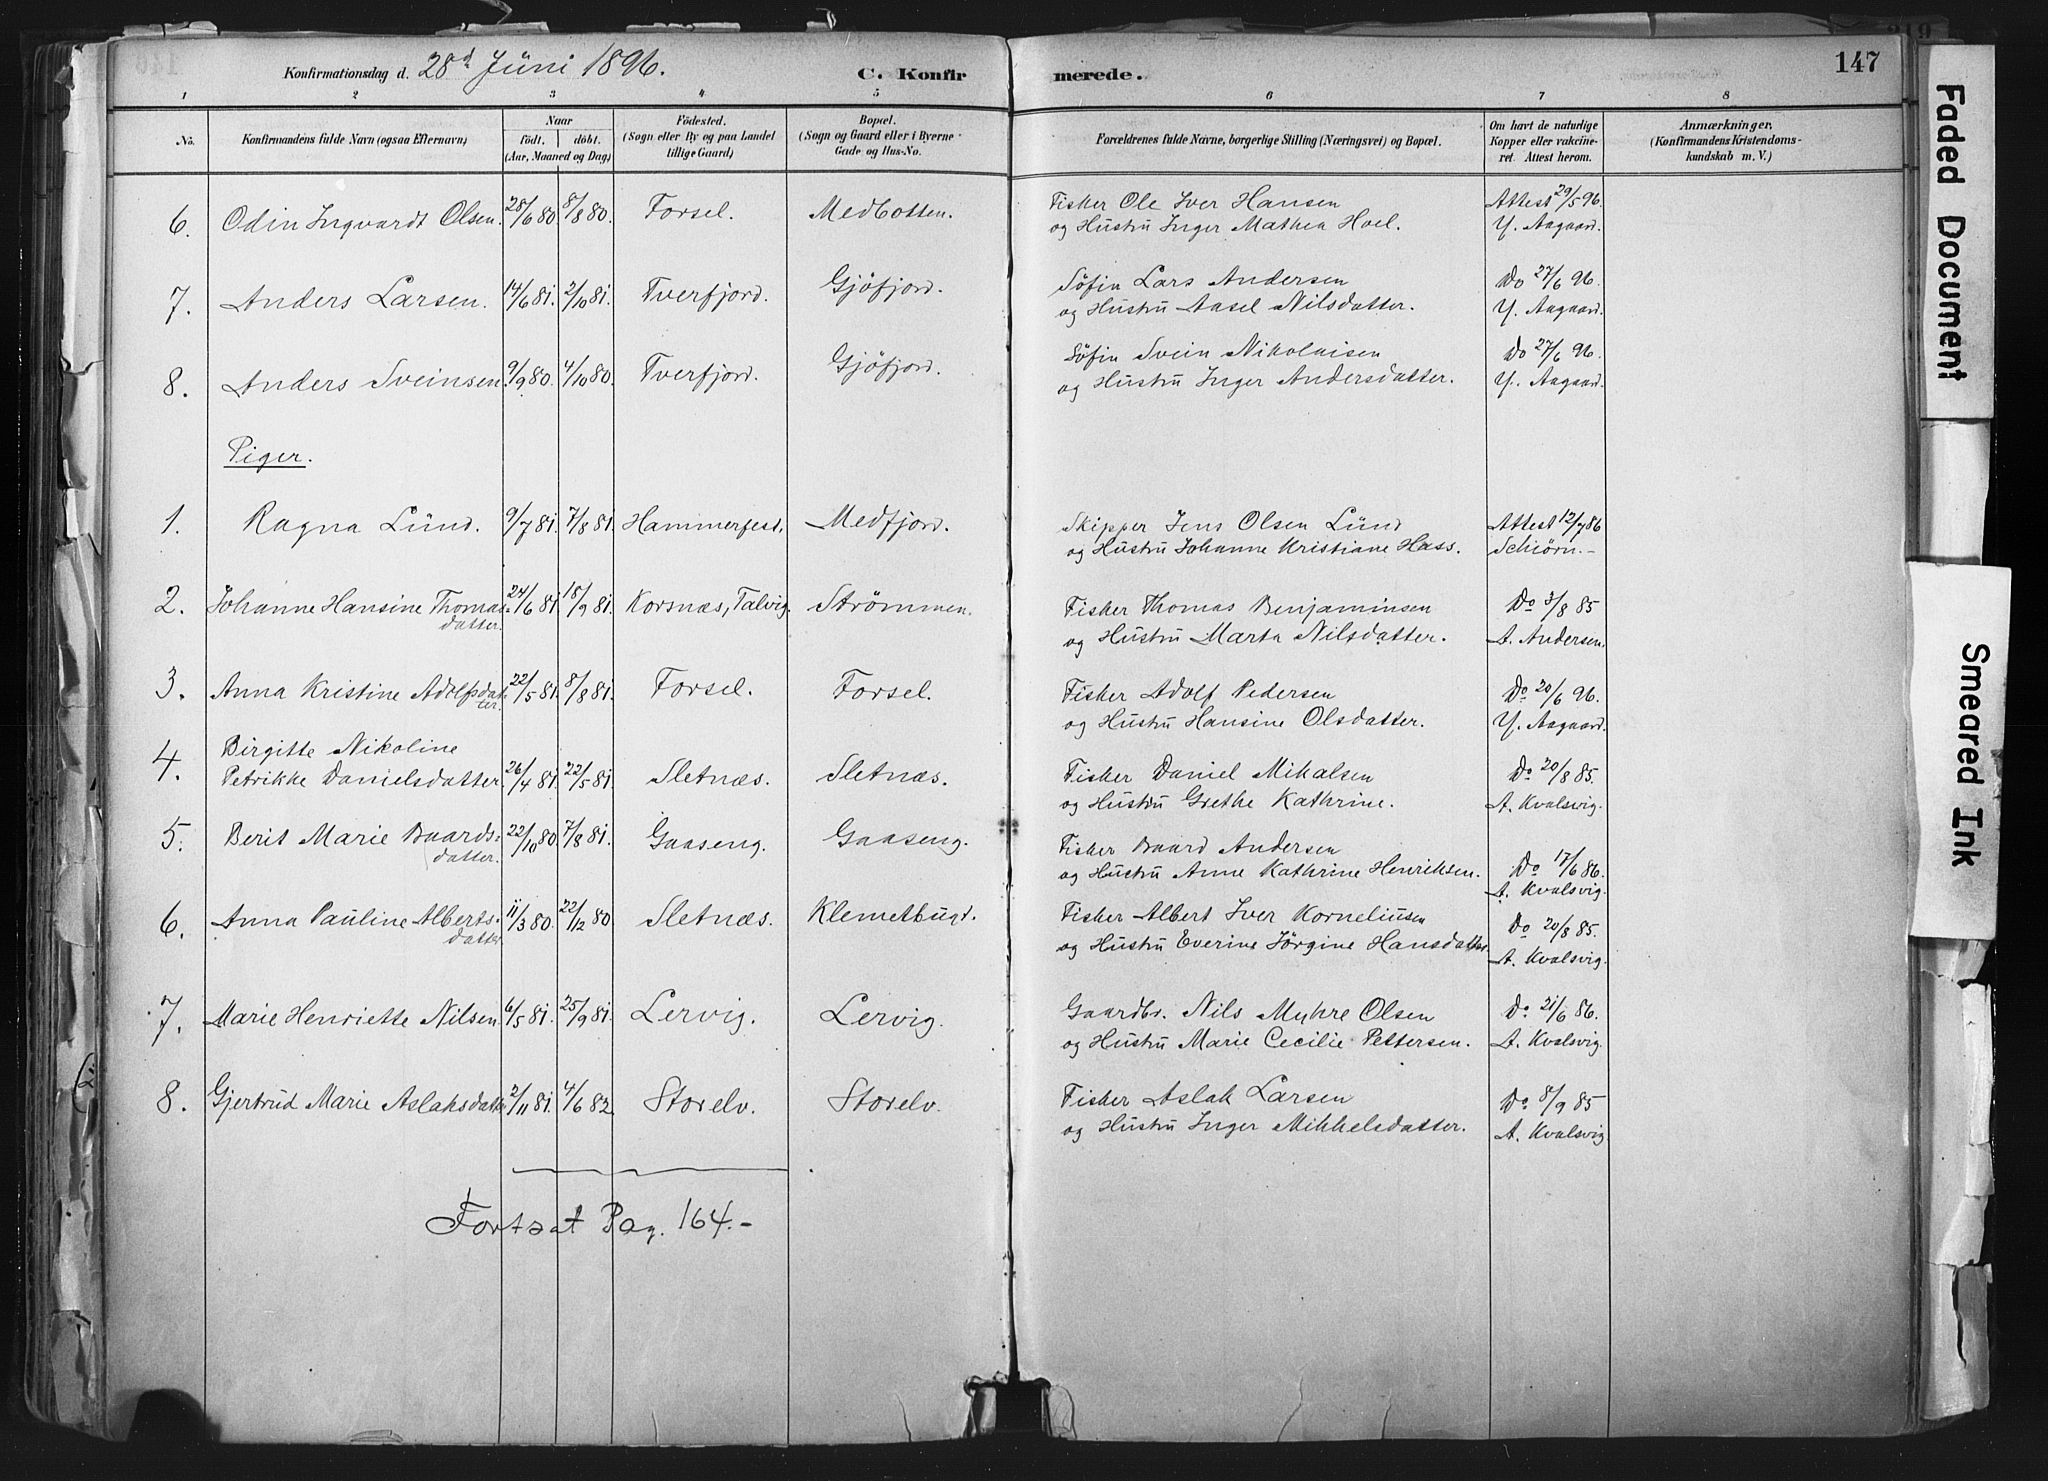 147
Konfirmationsdag d. 28d Jüni 1896. C. Konfirmerede.
1 2 3 4 5 6 7 8
No. Konfirmandens fulde Navn (ogsaa Efternavn) Naar født, døbt. (Aar, Maaned og Dag) Fødested. (Sogn eller By og paa Landet tillige Gaard) Bopæl. (Sogn og Gaard eller i Byerne Gade og Hus-No. Forældrenes fulde Navne, borgerlige Stilling (Næringsvei) og Bopæl. Om havt de naturlige Kopper eller vakcineret. Attest herom. Anmærkninger, (Konfirmandens Kristendomskundskab m. V.)
6. Odin Ingvardt Olsen. 28/6 80. 8/8 80. Forsel. Medbotten. Fisker Ole Iver Hansen Attest 29/5 96.
og Hustrü Inger Mathea Hoel. Y. Aagaard.
7. Anders Larsen. 14/6 81. 2/10 81. Tverfjord. Gjöfjord. Söfin Lars Andersen Do 27/6 96.
og Hustrü Aasel Nilsdatter. Y. Aagaard.
8. Anders Sveinsen. 9/9 80. 4/10 80. Tverfjord. Gjöfjord. Söfin Svein Nikolaisen Do 27/6 96.
og Hustrü Inger Andersdatter. Y. Aagaard.
Piger.
1. Ragna Lünd. 9/7 81. 7/8 81. Hammerfest. Medfjord. Skipper Jens Olsen Lünd Attest 12/7 86
og Hustrü Johanne Kristiane Hass. Schiörn.-
2. Johanne Hansine Thomas- 24/6 81. 18/9 81. Korsnæs, Talvig. Strömmen. Fisker Thomas Benjaminsen Do 3/8 85
datter. og Hustrü Marta Nilsdatter. A. Andersen.
3. Anna Kristine Adolfsdat- 22/5 81. 8/8 81. Forsel. Forsel. Fisker Adolf Pedersen Do 20/6 96.
ter. og Hustrü Hansine Olsdatter. Y. Aagaard.
4. Birgitte Nikoline
Petrikke Danielsdatter. 26/4 81. 22/5 81. Sletnæs. Sletnæs. Fisker Daniel Mikalsen Do 20/8 85.
og Hustrü Grethe Kathrine. A. Kvalsvig.
5. Berit Marie Baards- 22/10 80. 7/8 81. Gaaseng. Gaaseng. Fisker Baard Andersen
datter. og Hustrü Anne Kathrine Henriksen. Do 17/6 86.
A. Kvalsvig.
6. Anna Pauline Alberts- 11/3 80. 22/12 80 Sletnæs. Klemetbugt. Fisker Albert Iver Korneliüsen Do 20/8 85.
datter. og Hustrü Everine Jörgine Hansdatter. A. Kvalsvig.
7. Marie Henriette Nilsen 6/5 81. 25/9 81. Lervig. Lervig. Gaardbr. Nils Myhre Olsen Do 21/6 86.
og Hustrü Marie Cecilie Pettersen. A. Kvalsvig.
8. Gjertrüd Marie Aslaksdatter 2/11 81. 4/6 82. Storelv. Storelv. Fisker Aslak Larsen Do 8/9 85
og Hustrü Inger Mikkelsdatter. A. Kvalsvig.
Fortsat Pag. 164.-
Faded Document
Smeared Ink